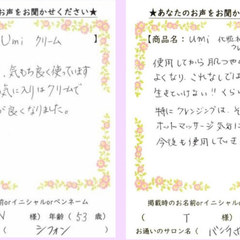 お声をお聞かせください★
Umi クリーム
、気もち良く使っています
気に入りはクリームで
なくなりました。
前orイニシャルorペンネーム
N 様) 年齢(53 歳
シフォン
★あなたのお声をお聞かせ
商品名( Umi 化粧
使用してから肌つや
よくなり、これなしでは
生きていけない!!
特にクレンジングは、そ
ホットマッサージ気分に
今後も使用してい
掲載時のお名前orイニシャル
( T 様)
お通いのサロン名(